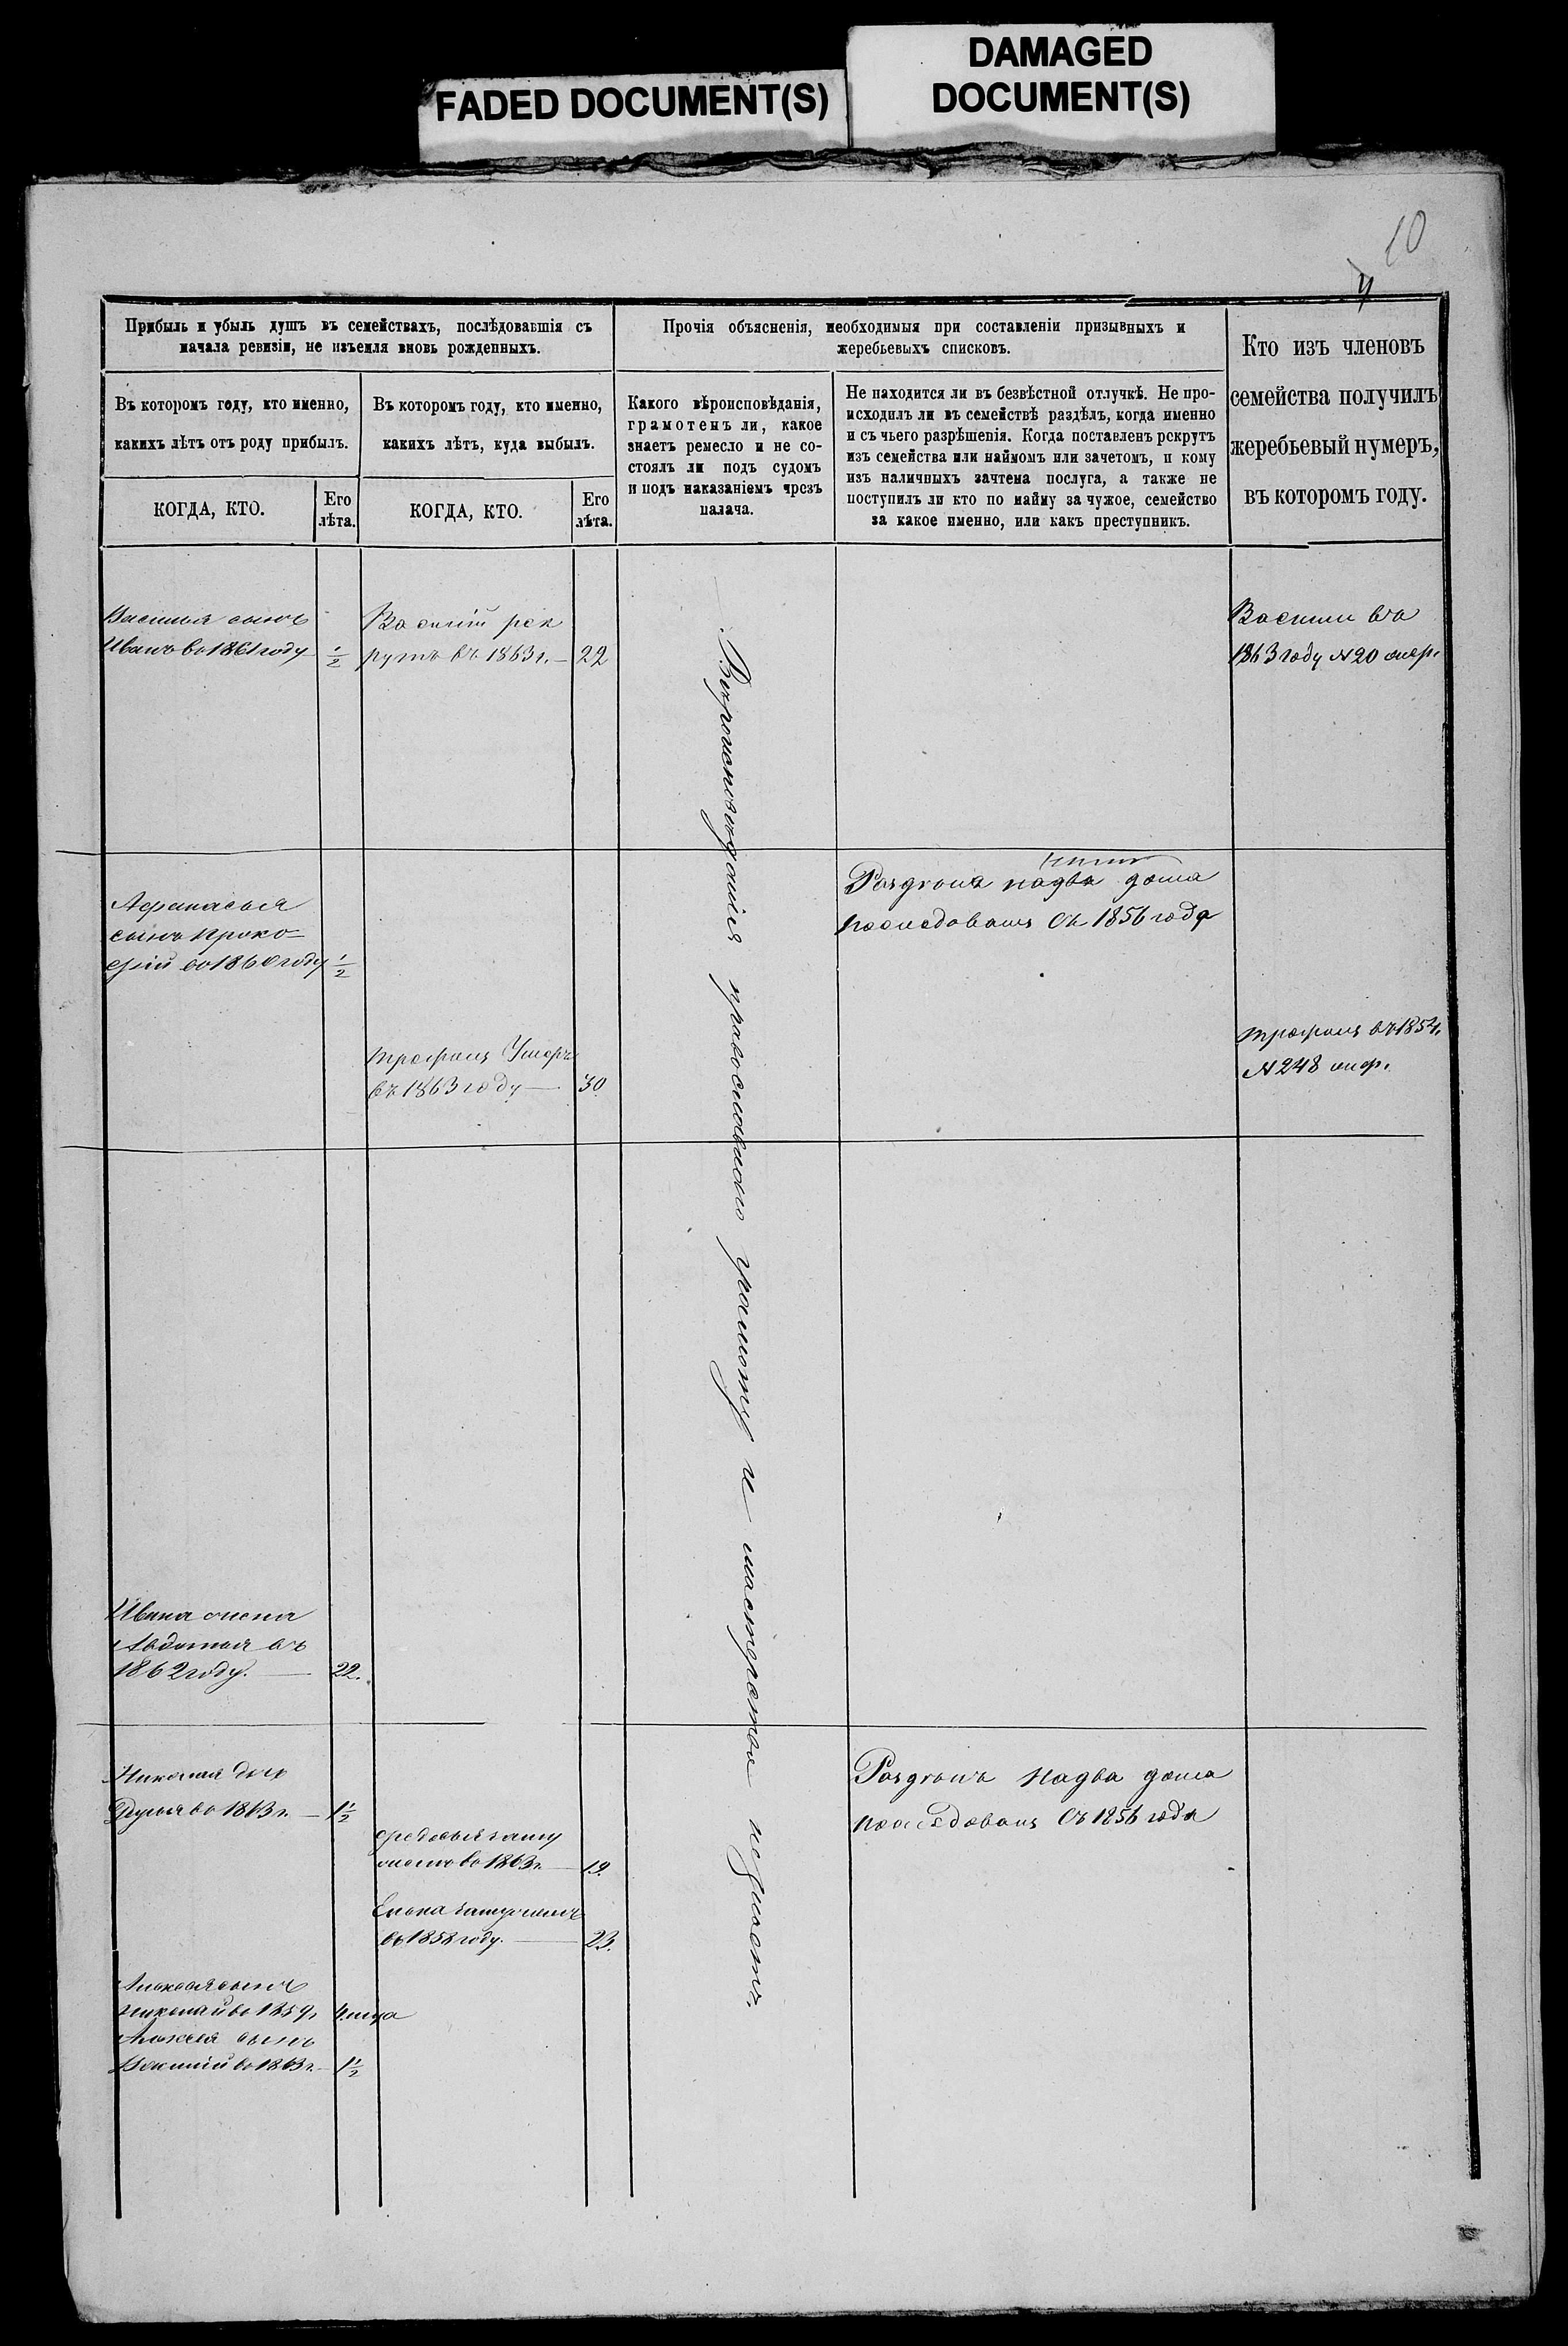 FADED DOCUMENT(S)
DAMAGED
DOCUMENT(S)
10
Прибыль и убыль душъ въ семействахъ, послѣдовавшія съ
начала ревизіи, не изъемля вновь рожденныхъ.
Прочія объясненія, необходимыя при составленіи призывныхъ и
жеребьевыхъ списковъ.
Кто изъ членовъ
семейства получилъ
жеребьевый нумеръ,
въ которомъ году.
Въ которомъ году, кто именно,
какихъ лѣтъ отъ роду прибылъ.
Въ которомъ году, кто именно,
какихъ лѣтъ, куда выбылъ.
Какого вѣроисповѣданія,
грамотенъ ли, какое
знаетъ ремесло и не со-
стоялъ ли подъ судомъ
и подъ наказаніемъ чрезъ
палача.
Не находится ли въ безвѣстной отлучкѣ. Не про-
исходилъ ли въ семействѣ раздѣлъ, когда именно
и съ чьего разрѣшенія. Когда поставленъ рекрутъ
изъ семейства или наймомъ или зачетомъ, и кому
изъ наличныхъ зачтена послуга, а также не
поступилъ ли кто по найму за чужое, семейство
за какое именно, или какъ преступникъ.
КОГДА, КТО.
Его
лѣта.
КОГДА, КТО.
Его
лѣта.
Василья сынъ
Иванъ во 1861 году 1/2
Василій рек
рутъ въ 1863 г. — 22
Василій въ
1863 году N 20
Вѣроисповѣданія православнаго грамоту и мастерства не знаетъ
Афанасья
сынъ Проко-
фій во 1860 году 1/2
Раздѣлъ на два дома
последовалъ съ 1856 года
Трофимъ Умеръ
въ 1863 году — 30
Трофимъ въ 1854.
N 248
Ивана жена
Авдотья въ
1862 году. — 22.
Николая дочь
во 1863 г. — 1 1/2
Раздѣлъ на два дома
последовалъ съ 1856 года
Федосья заму
жемъ во 1863 г. — 19.
Елена замужемъ
въ 1858 году. — 23.
Алексея сынъ
Николай во 1859 г.
Алексея сынъ
Василій во 1863 г. — 1 1/2